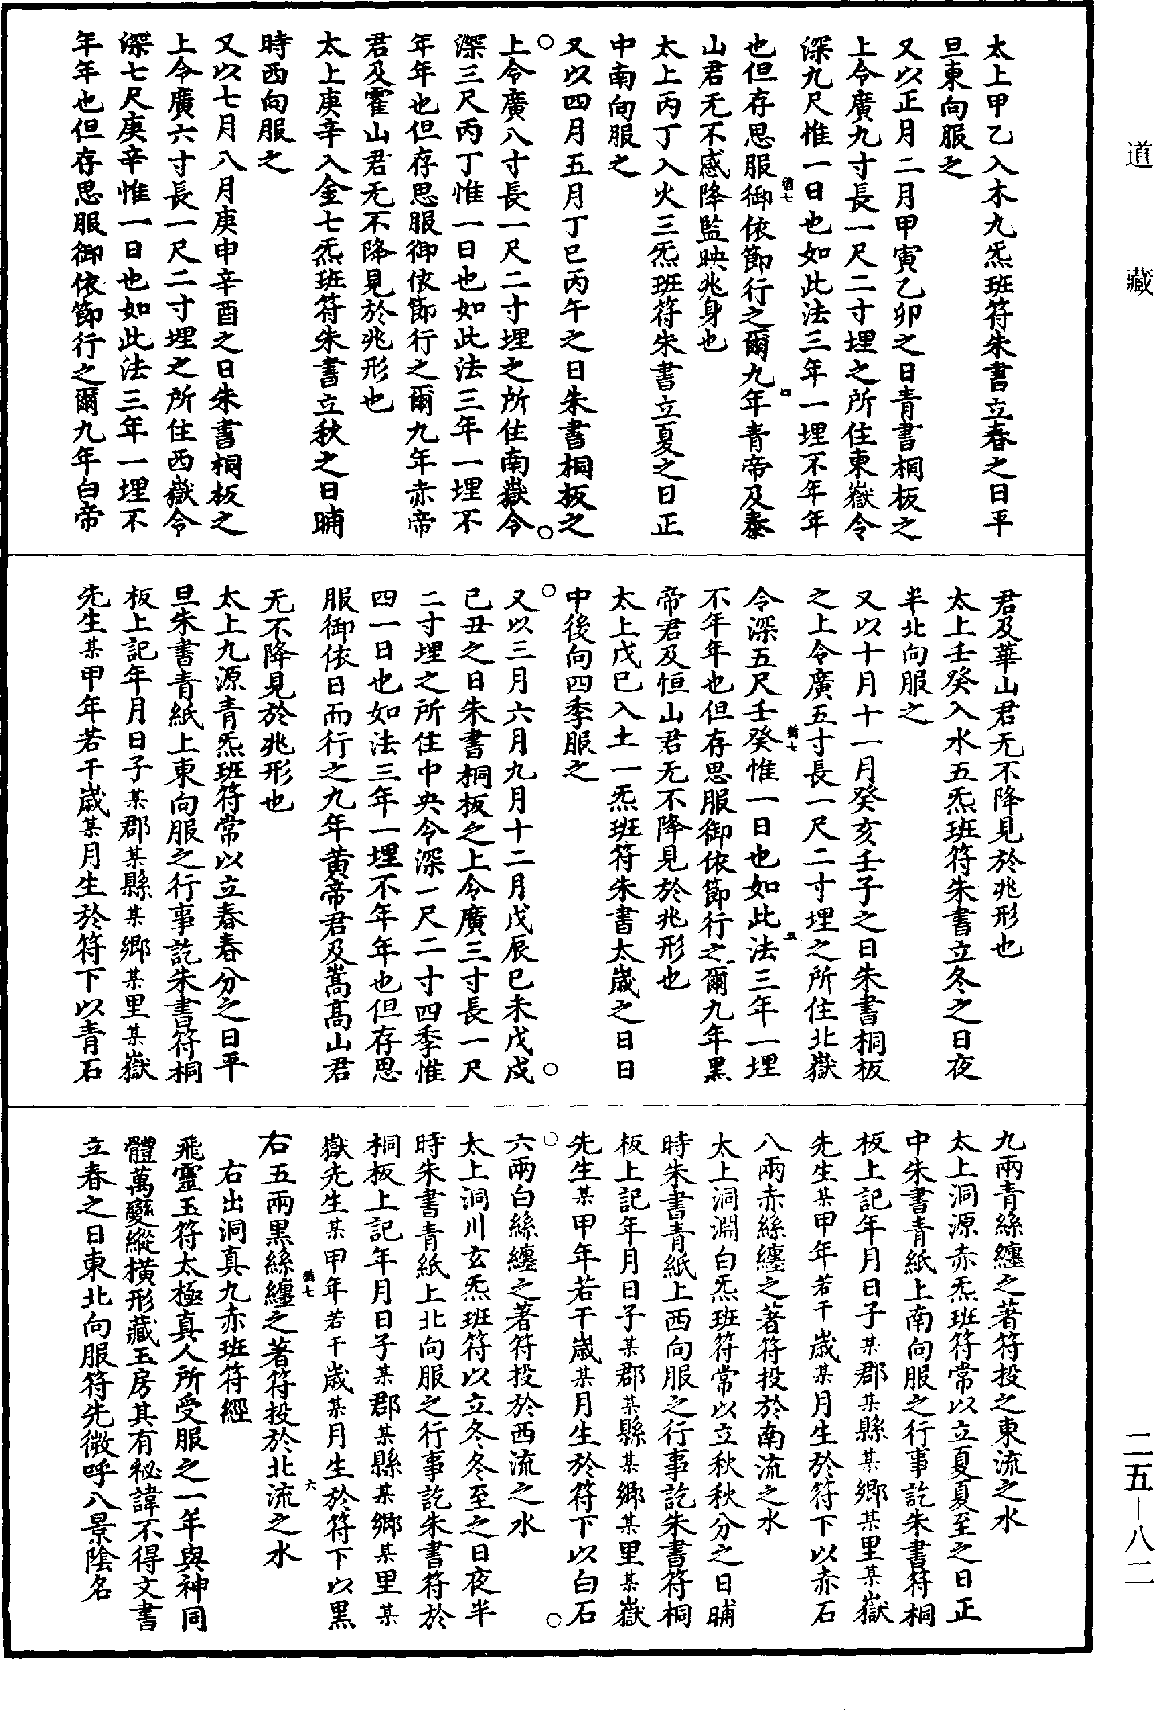 道藏
太上甲乙入木九炁班符朱書立春之日平
旦東向服之
又以正月二月甲寅乙卯之日青書桐板之
上令廣九寸長一尺二寸埋之所住東嶽令
深九尺惟一日也如此法三年一埋不年年
也但存思服御依節行之爾九年青帝及泰
山君无不感降監映兆身也
太上丙丁入火三炁班符朱書立夏之日正
中南向服之
又以四月五月丁巳丙午之日朱書桐板之
上令廣八寸長一尺二寸埋之所住南嶽令
深三尺丙丁惟一日也如此法三年一埋不
年年也但存思服御依節行之爾九年赤帝
君及霍山君无不降見於兆形也
太上庚辛入金七炁班符朱書立秋之日晡
時西向服之
又以七月八月庚申辛酉之日朱書桐板之
上令廣六寸長一尺二寸埋之所住西嶽令
深七尺庚辛惟一日也如此法三年一埋不
年年也但存思服御依節行之爾九年白帝
君及華山君无不降見於兆形也
太上壬癸入水五炁班符朱書立冬之日夜
半北向服之
又以十月十一月癸亥壬子之日朱書桐板
之上令廣五寸長一尺二寸埋之所住北嶽
令深五尺壬癸惟一日也如此法三年一埋
不年年也但存思服御依節行之爾九年黑
帝君及恒山君无不降見於兆形也
太上戊巳入土一炁班符朱書太歲之日日
中後向四季服之
又以三月六月九月十二月戊辰巳未戊戌
己丑之日朱書桐板之上令廣三寸長一尺
二寸埋之所住中央令深一尺二寸四季惟
四一日也如法三年一埋不年年也但存思
服御依日而行之九年黃帝君及嵩高山君
无不降見於兆形也
太上九源青炁班符常以立春春分之日平
旦朱書青紙上東向服之行事訖朱書符桐
板上記年月日子某郡某縣某鄉某里某嶽
先生某甲年若干歲某月生於符下以青石
九兩青絲纏之著符投之東流之水
太上洞源赤炁班符常以立夏夏至之日正
中朱書青紙上南向服之行事訖朱書符桐
板上記年月日子某郡某縣某鄉某里某嶽
先生某甲年若干歲某月生於符下以赤石
八兩赤絲纏之著符投於南流之水
太上洞淵白炁班符常以立秋秋分之日晡
時朱書青紙上西向服之行事訖朱書符桐
板上記年月日子某郡某縣某鄉某里某嶽
先生某甲年若干歲某月生於符下以白石
六兩白絲纏之著符投於西流之水
太上洞川玄炁班符以立冬冬至之日夜半
時朱書青紙上北向服之行事訖朱書符於
桐板上記年月日子某郡某縣某鄉某里某
嶽先生某甲年若干歲某月生於符下以黑
右五兩黑絲纏之著符投於北流之水
右出洞真九赤班符經
飛靈玉符太極真人所受服之一年與神同
體萬變縱橫形藏玉房其有秘諱不得文書
立春之日東北向服符先微呼八景陰名
二五—八二